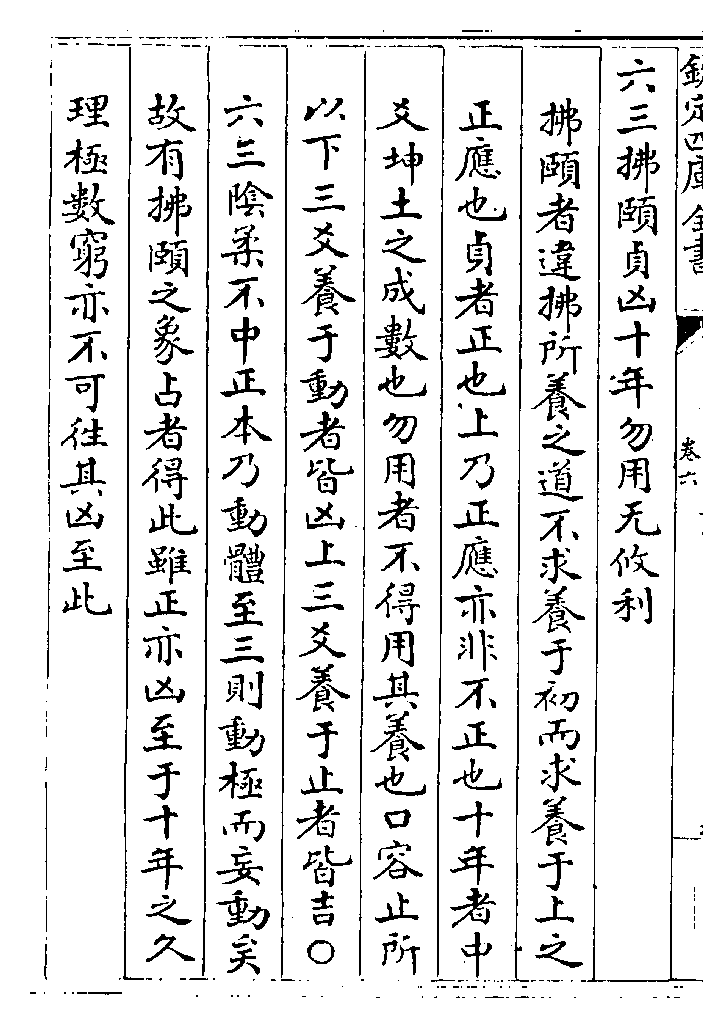 欽定四庫全書
卷六
六三拂頤貞凶十年勿用无攸利
拂頤者違拂所養之道不求養于初而求養于上之
正應也貞者正也上乃正應亦非不正也十年者中
爻坤土之成數也勿用者不得用其養也口容止所
以下三爻養于動者皆凶上三爻養于止者皆吉○
六三陰柔不中正本乃動體至三則動極而妄動矣
故有拂頤之象占者得此雖正亦凶至于十年之久
理極數窮亦不可徃其凶至此